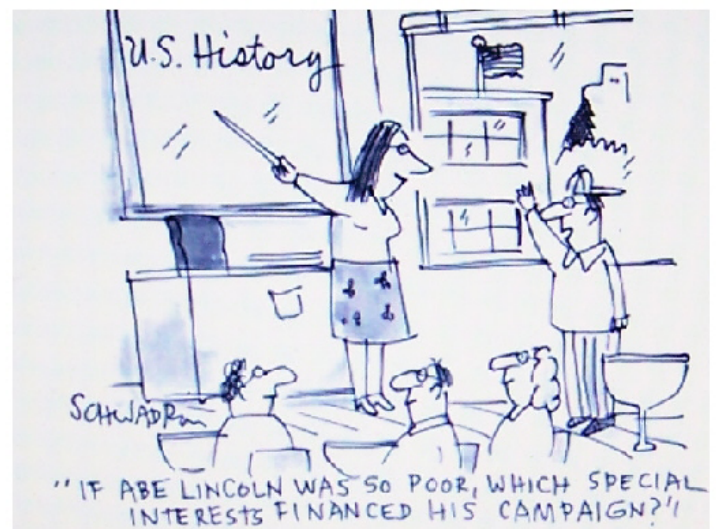 U.S. History
SCHWADRON
"IF ABE LINCOLN WAS SO POOR, WHICH SPECIAL
INTERESTS FINANCED HIS CAMPAIGN?"